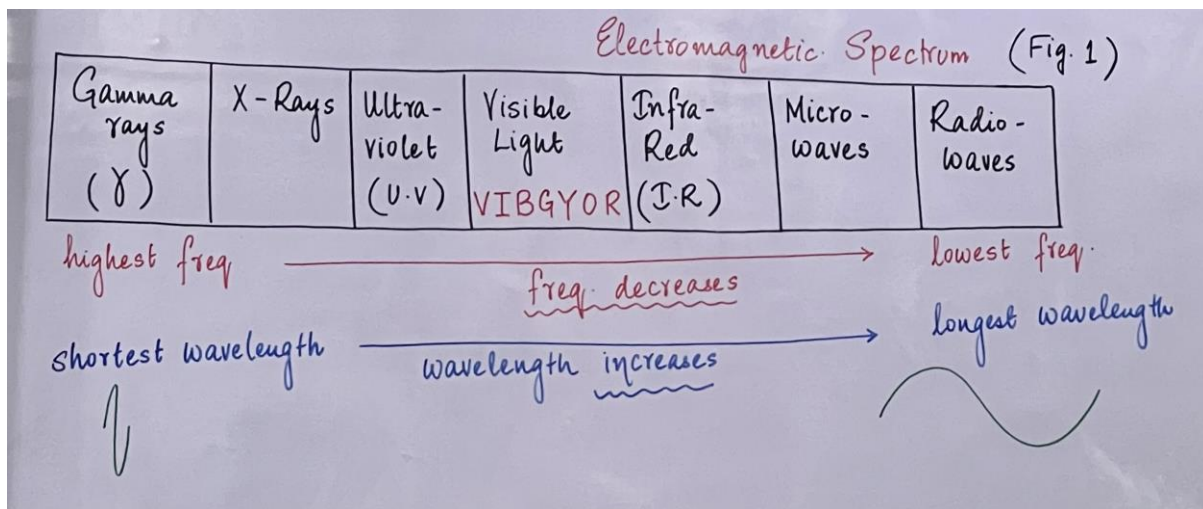 Electromagnetic Spectrum (Fig. 1)
Gamma rays (γ)
X-Rays
Ultra-violet (U.V)
Visible Light VIBGYOR
Infra-Red (I.R)
Micro-waves
Radio-waves
highest freq
freq. decreases
lowest freq.
shortest wavelength
wavelength increases
longest wavelength